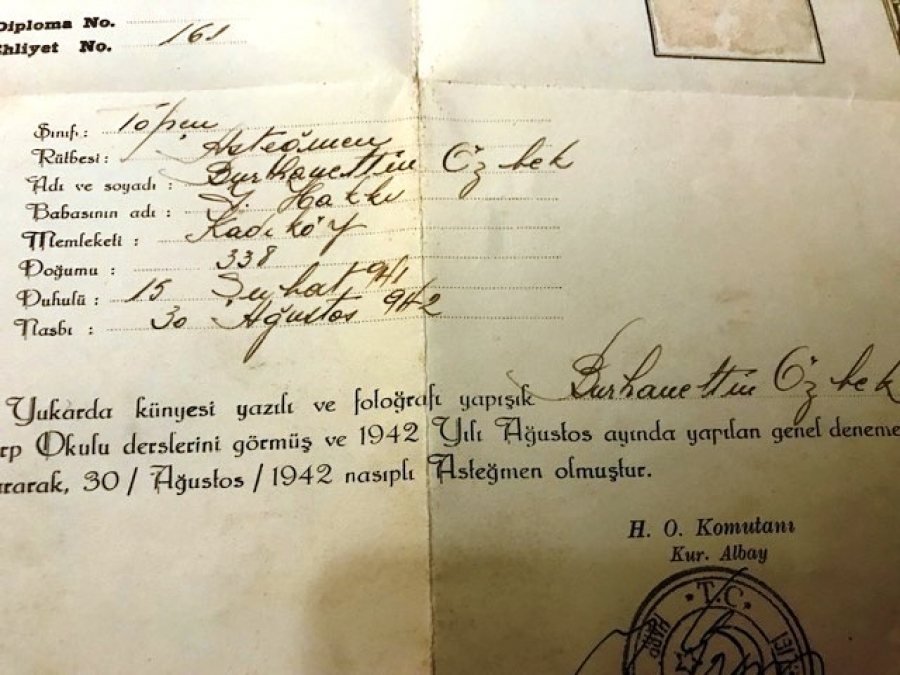 Diploma No.
Ehliyet No. 161
Sınıf: Topçu
Rütbesi: Asteğmen
Adı ve soyadı : Burhanettin Özbek
Babasının adı : İ. Hakkı
Memleketi : Kadıköy
Doğumu : 338
Duhulü : 15 Şubat 941
Nasbı : 30 Ağustos 942
Yukarda künyesi yazılı ve fotoğrafı yapışık Burhanettin Özbek
rp Okulu derslerini görmüş ve 1942 Yılı Ağustos ayında yapılan genel deneme
ararak, 30 / Ağustos / 1942 nasıplı Asteğmen olmuştur.
H. O. Komutanı
Kur. Albay
T.C.